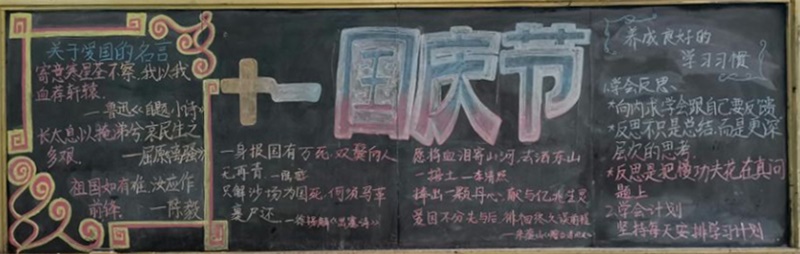 关于爱国的名言
寄意寒星荃不察,我以我
血荐轩辕.
—鲁迅《自题小诗》
长太息以掩涕兮,哀民生之
多艰.
—屈原
祖国如有难,汝应作
前锋. —陈毅
十一国庆节
一身报国有万死,双鬓向人
无再青
只解沙场为国死,何须马革
裹尸还
愿将血泪寄山河,去洒东山
一抔土
捧出一颗丹心,献与亿兆生灵
爱国不分先与后
养成良好的
学习习惯
1.学会反思、
*向内求,学会跟自己要反馈
*反思不只是总结,而是更深
层次的思考
*反思是把慢功夫花在真问
题上
2.学会计划
坚持每天安排学习计划